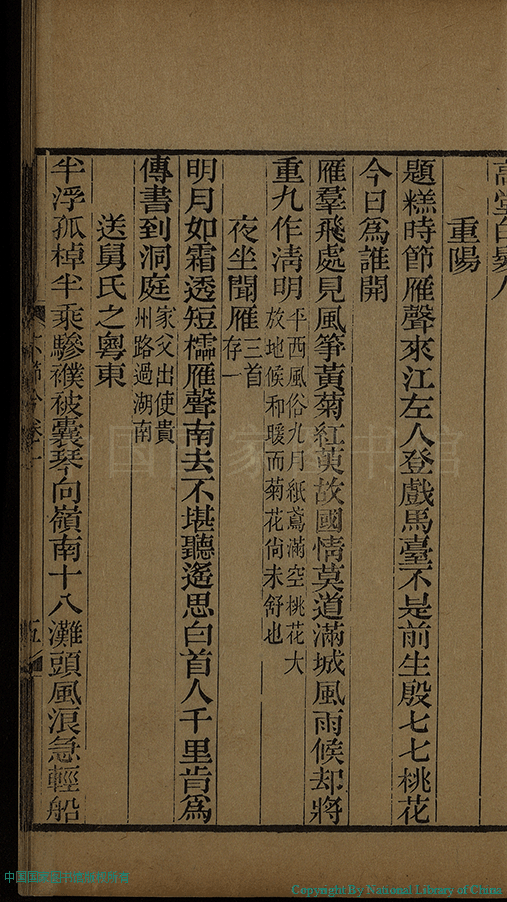 高堂白髮人
重陽
題糕時節雁聲來江左人登戲馬臺不是前生殷七七桃花
今日為誰開
雁羣飛處見風箏黃菊紅萸故國情莫道滿城風雨候却將
重九作淸明平西風俗九月紙鳶滿空桃花大
放地候和暖而菊花尙未舒也
夜坐聞雁三首
存一
明月如霜透短櫺雁聲南去不堪聽遙思白首人千里肯爲
傳書到洞庭家父出使貴
州路過湖南
送舅氏之粵東
半浮孤棹半乘驂襆被囊琴向嶺南十八灘頭風浪急輕船
卷一
五
中国国家图书馆
中国国家图书馆
Copyright By National Library of China